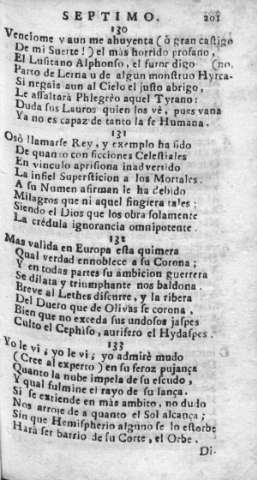 SEPTIMO. 201
130
Venciome y aun me ahuyenta (ò gran castigo
De mi Suerte!) el mas horrido profano,
El Lusitano Alphonso, el furor digo (no.
Parto de Lerna u de algun monstruo Hyrca-
Si negais aun al Cielo el justo abrigo,
Le assaltarà Phlegrèo aquel Tyrano:
Duda sus Lauros quien los vè, pues vana
Ya no es capaz de tanto la fe Humana.
131
Osò llamarse Rey, y exemplo ha sido
De quanto con ficciones Celestiales
En vinculo aprisiona inadvertido
La infiel Supersticion a los Mortales.
A su Numen afirman le ha debido
Milagros que ni aquel fingiera tales:
Siendo el Dios que los obra solamente
La crèdula ignorancia omnipotente.
132
Mas valida en Europa esta quimera
Qual verdad ennoblece a su Corona;
Y en todas partes su ambicion guerrera
Se dilata y triumphante nos baldona.
Breve al Lethes discurre, y la ribera
Del Duero que de Olivas se corona,
Bien que no exceda sus undosos jaspes
Culto el Cephiso, aurifero el Hydaspes.
133
Yo le vi, yo le vi; yo admirè mudo
(Cree al experto) en su feroz pujança
Quanto la nube impela de su escudo,
Y qual fulmine el rayo de su lança.
Si se extiende en mas ambito, no dudo
Nos arroje de a quanto el Sol alcança;
Sin que Hemispherio alguno se lo estorbe
Harà ser barrio de su Corte, el Orbe.
Di-